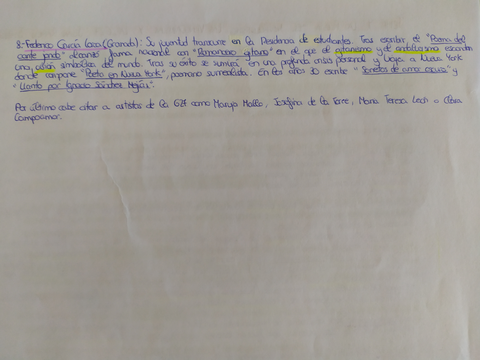 8.- Federico García Lorca (Granada): Su juventud transcurre en la Residencia de estudiantes. Tras escribir, el "Poema del
cante jondo" alcanza fama nacional con "Romancero gitano" en el que el gitanismo y el andalucismo esconden
una visión simbólica del mundo. Tras su éxito se sumirá en una profunda crisis personal y viaja a Nueva York
donde compone "Poeta en Nueva York", poemario surrealista. En los años 30 escribe "Sonetos de amor oscuro" y
"Llanto por Ignacio Sánchez Mejías".
Por último cabe citar a artistas de la G27 como Maruja Mallo, Josefina de la Torre, María Teresa León o
Campoamor.